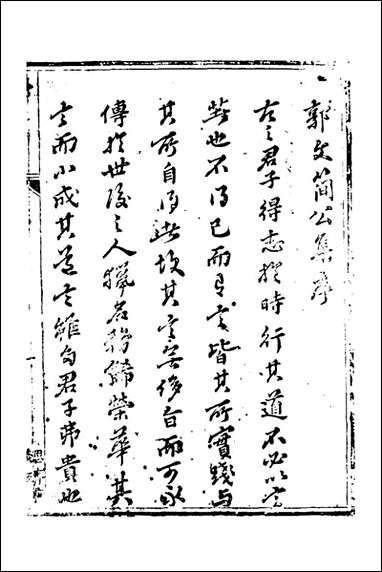 郭文簡公集序
古之君子得志於時行其道不必以言
著也不得已而有言皆其所實踐与
其所自得者故其言無侈旨而可永
傳於世後之人獵名務歸榮華其
言而小成其道言雖多君子弗貴也